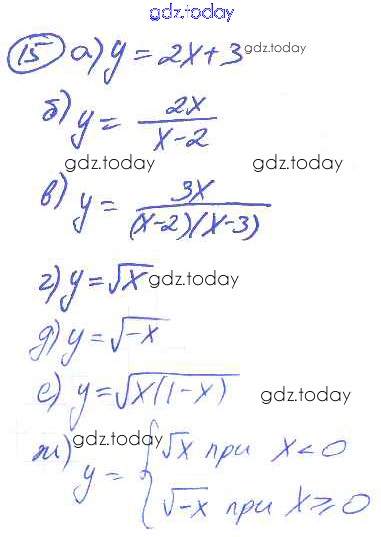 gdz.today
15 а) y = 2x + 3 gdz.today
б) y = 2x / (x-2)
gdz.today gdz.today
в) y = 3x / ((x-2)(x-3))
г) y = √x gdz.today
д) y = √-x
е) y = √x(1-x) gdz.today
gdz.today
ж) y = { √x при x < 0
√-x при x ≥ 0